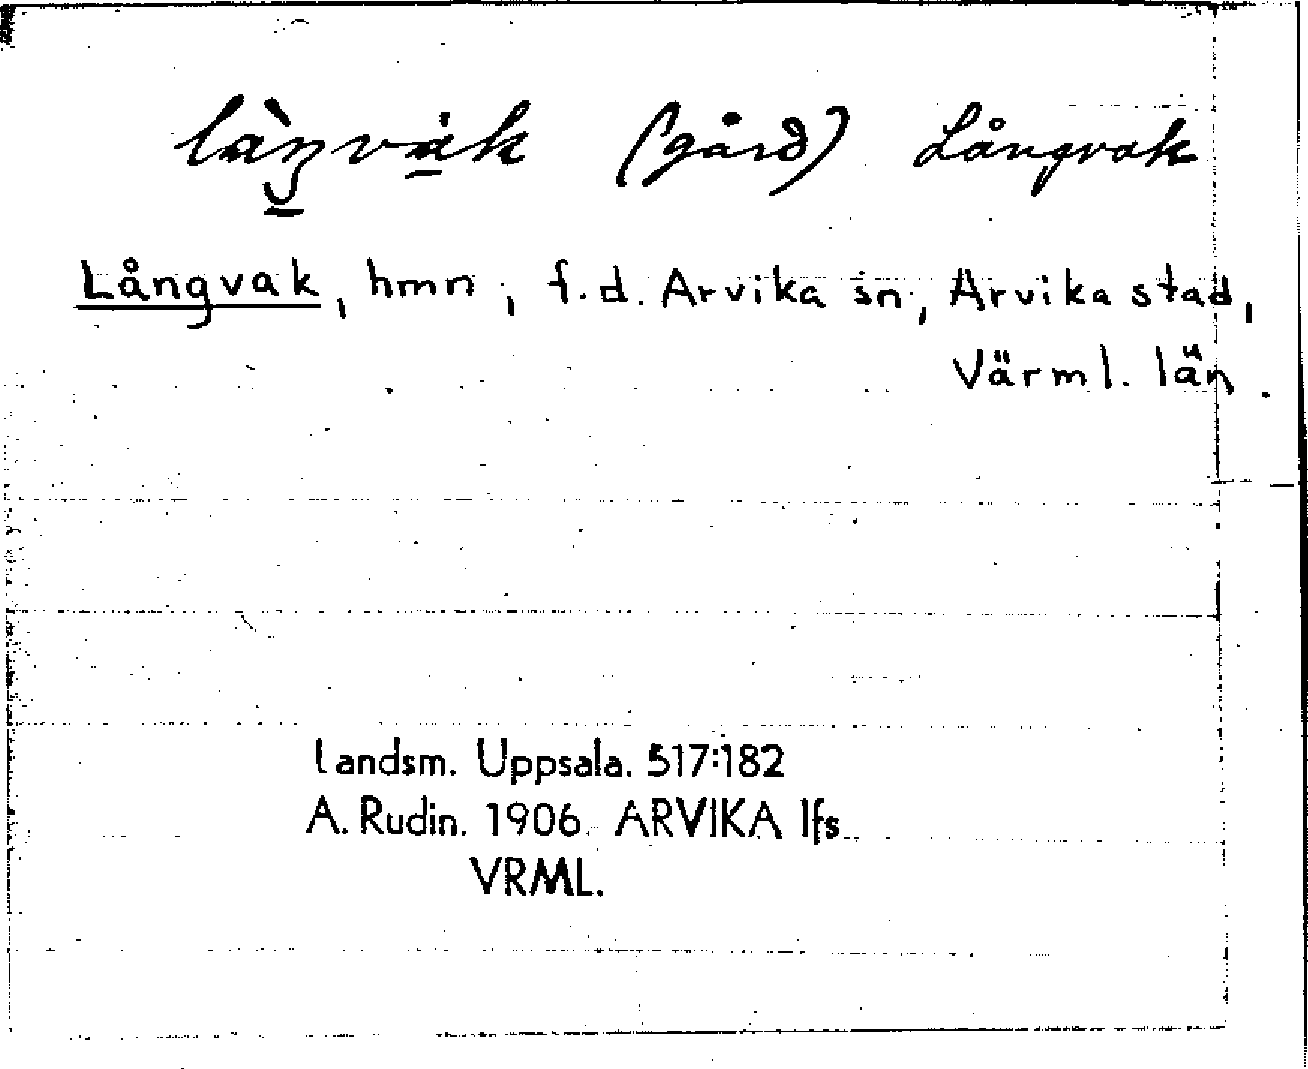 (gård) Långvak
Långvak, hmn, f.d. Arvika sn, Arvika stad,
Värml. län.
Landsm. Uppsala. 517:182
A. Rudin. 1906. ARVIKA lfs
VRML.